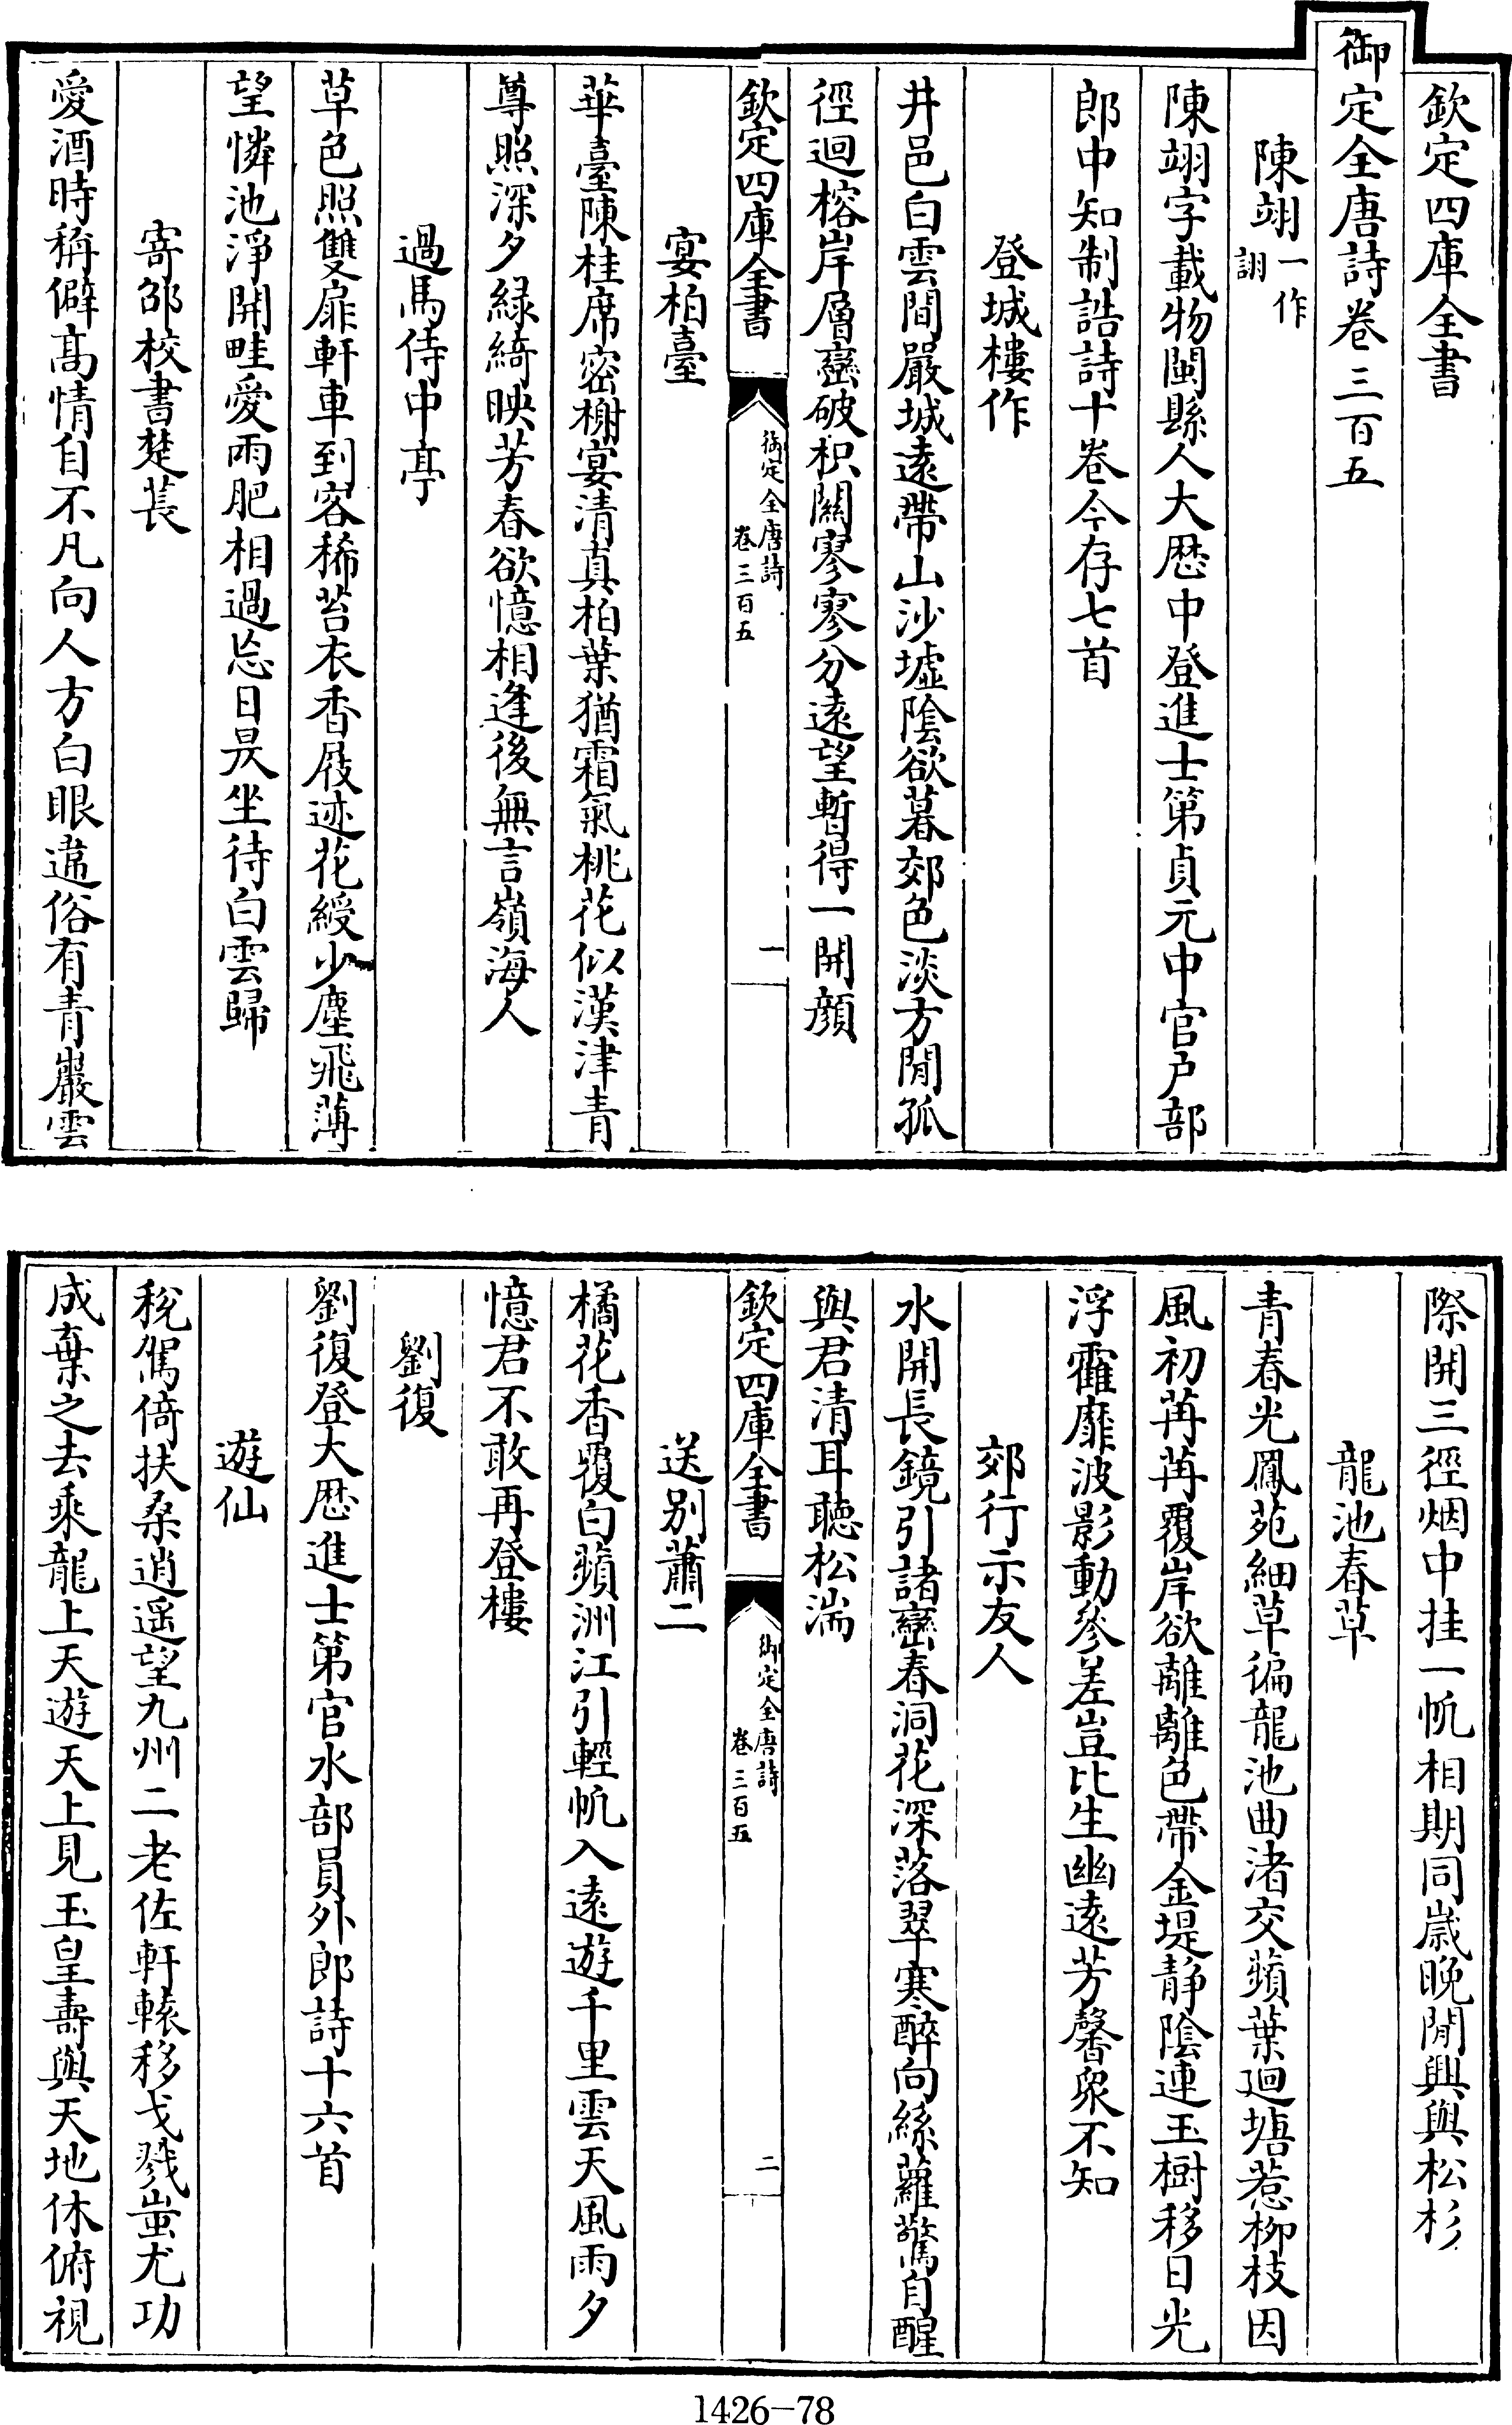 欽定四庫全書
御定全唐詩卷三百五
陳翊一作詡
陳翊字載物閩縣人大歴中登進士第貞元中官户部
郎中知制誥詩十卷今存七首
登城樓作
井邑白雲間嚴城遠帶山沙墟陰欲暮郊色淡方閒孤
徑迴榕岸層巒破枳關寥寥分遠望暫得一開顔
欽定四庫全書
御定全唐詩
卷三百五
一
宴柏臺
華臺陳桂席密榭宴清真柏葉猶霜氣桃花似漢津青
尊照深夕緑綺映芳春欲憶相逢後無言嶺海人
過馬侍中亭
草色照雙扉軒車到客稀苔衣香屐迹花綬少塵飛薄
望憐池淨開畦愛雨肥相過忘日昃坐待白雲歸
寄邵校書楚萇
愛酒時稱僻髙情自不凡向人方白眼違俗有青巖雲
際開三徑烟中挂一㠶相期同嵗晚閒興與松杉
龍池春草
青春光鳳苑細草徧龍池曲渚交蘋葉迴塘惹柳枝因
風初苒苒覆岸欲離離色帶金堤静陰連玉樹移日光
浮靃靡波影動參差豈比生幽遠芳馨衆不知
郊行示友人
水開長鏡引諸巒春洞花深落翠寒醉向絲蘿驚自醒
與君清耳聴松湍
欽定四庫全書
御定全唐詩
卷三百五
二
送别蕭二
橘花香覆白蘋洲江引輕㠶入遠遊千里雲天風雨夕
憶君不敢再登樓
劉復
劉復登大歴進士第官水部員外郎詩十六首
遊仙
稅駕倚扶桑逍遥望九州二老佐軒轅移戈戮蚩尤功
成棄之去乘龍上天遊天上見玉皇壽與天地休俯視
1426-78